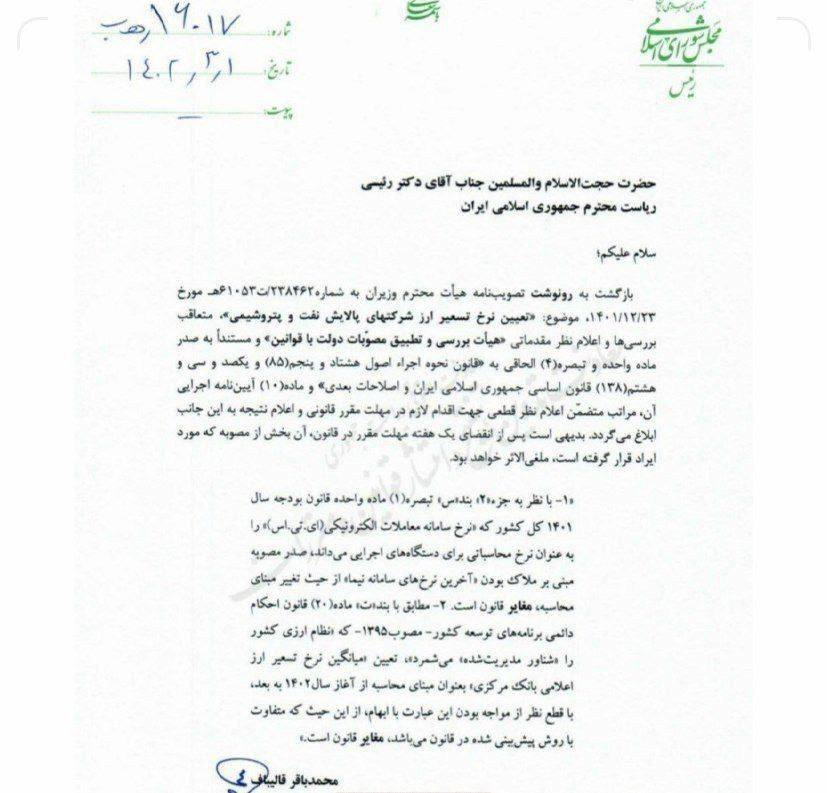 جمهوری اسلامی ایران
مجلس شورای اسلامی
رئیس
باسمه تعالی
شماره: ۱۶۰۱۷/هـ ب
تاریخ: ۱۴۰۲/۳/۱
پیوست: ــ
حضرت حجت‌الاسلام والمسلمین جناب آقای دکتر رئیسی
ریاست محترم جمهوری اسلامی ایران
سلام علیکم؛
بازگشت به رونوشت تصویب‌نامه هیأت محترم وزیران به شماره۲۳۸۴۶۲/ت۶۱۰۵۳هـ مورخ
۱۴۰۱/۱۲/۲۳، موضوع: «تعیین نرخ تسعیر ارز شرکتهای پالایش نفت و پتروشیمی»، متعاقب
بررسی‌ها و اعلام نظر مقدماتی «هیأت بررسی و تطبیق مصوّبات دولت با قوانین» و مستنداً به صدر
ماده واحده و تبصره(۴) الحاقی به «قانون نحوه اجراء اصول هشتاد و پنجم(۸۵) و یکصد و سی و
هشتم(۱۳۸) قانون اساسی جمهوری اسلامی ایران و اصلاحات بعدی» و ماده(۱۰) آیین‌نامه اجرایی
آن، مراتب متضمّن اعلام نظر قطعی جهت اقدام لازم در مهلت مقرر قانونی و اعلام نتیجه به این جانب
ابلاغ می‌گردد. بدیهی است پس از انقضای یک هفته مهلت مقرر در قانون، آن بخش از مصوبه که مورد
ایراد قرار گرفته است، ملغی‌الاثر خواهد بود.
«۱- با نظر به جزء«۲» بند«س» تبصره(۱) ماده واحده قانون بودجه سال
۱۴۰۱ کل کشور که «نرخ سامانه معاملات الکترونیکی(ای.تی.اس)» را
به عنوان نرخ محاسباتی برای دستگاه‌های اجرایی می‌داند، صدر مصوبه
مبنی بر ملاک بودن «آخرین نرخ‌های سامانه نیما» از حیث تغییر مبنای
محاسبه، مغایر قانون است. ۲- مطابق با بند«ت» ماده(۲۰) قانون احکام
دائمی برنامه‌های توسعه کشور- مصوب۱۳۹۵- که «نظام ارزی کشور
را «شناور مدیریت‌شده» می‌شمرد»، تعیین «میانگین نرخ تسعیر ارز
اعلامی بانک مرکزی» بعنوان مبنای محاسبه از آغاز سال۱۴۰۲ به بعد،
با قطع نظر از مواجه بودن این عبارت با ابهام، از این حیث که متفاوت
با روش پیش‌بینی شده در قانون می‌باشد، مغایر قانون است.»
محمدباقر قالیباف